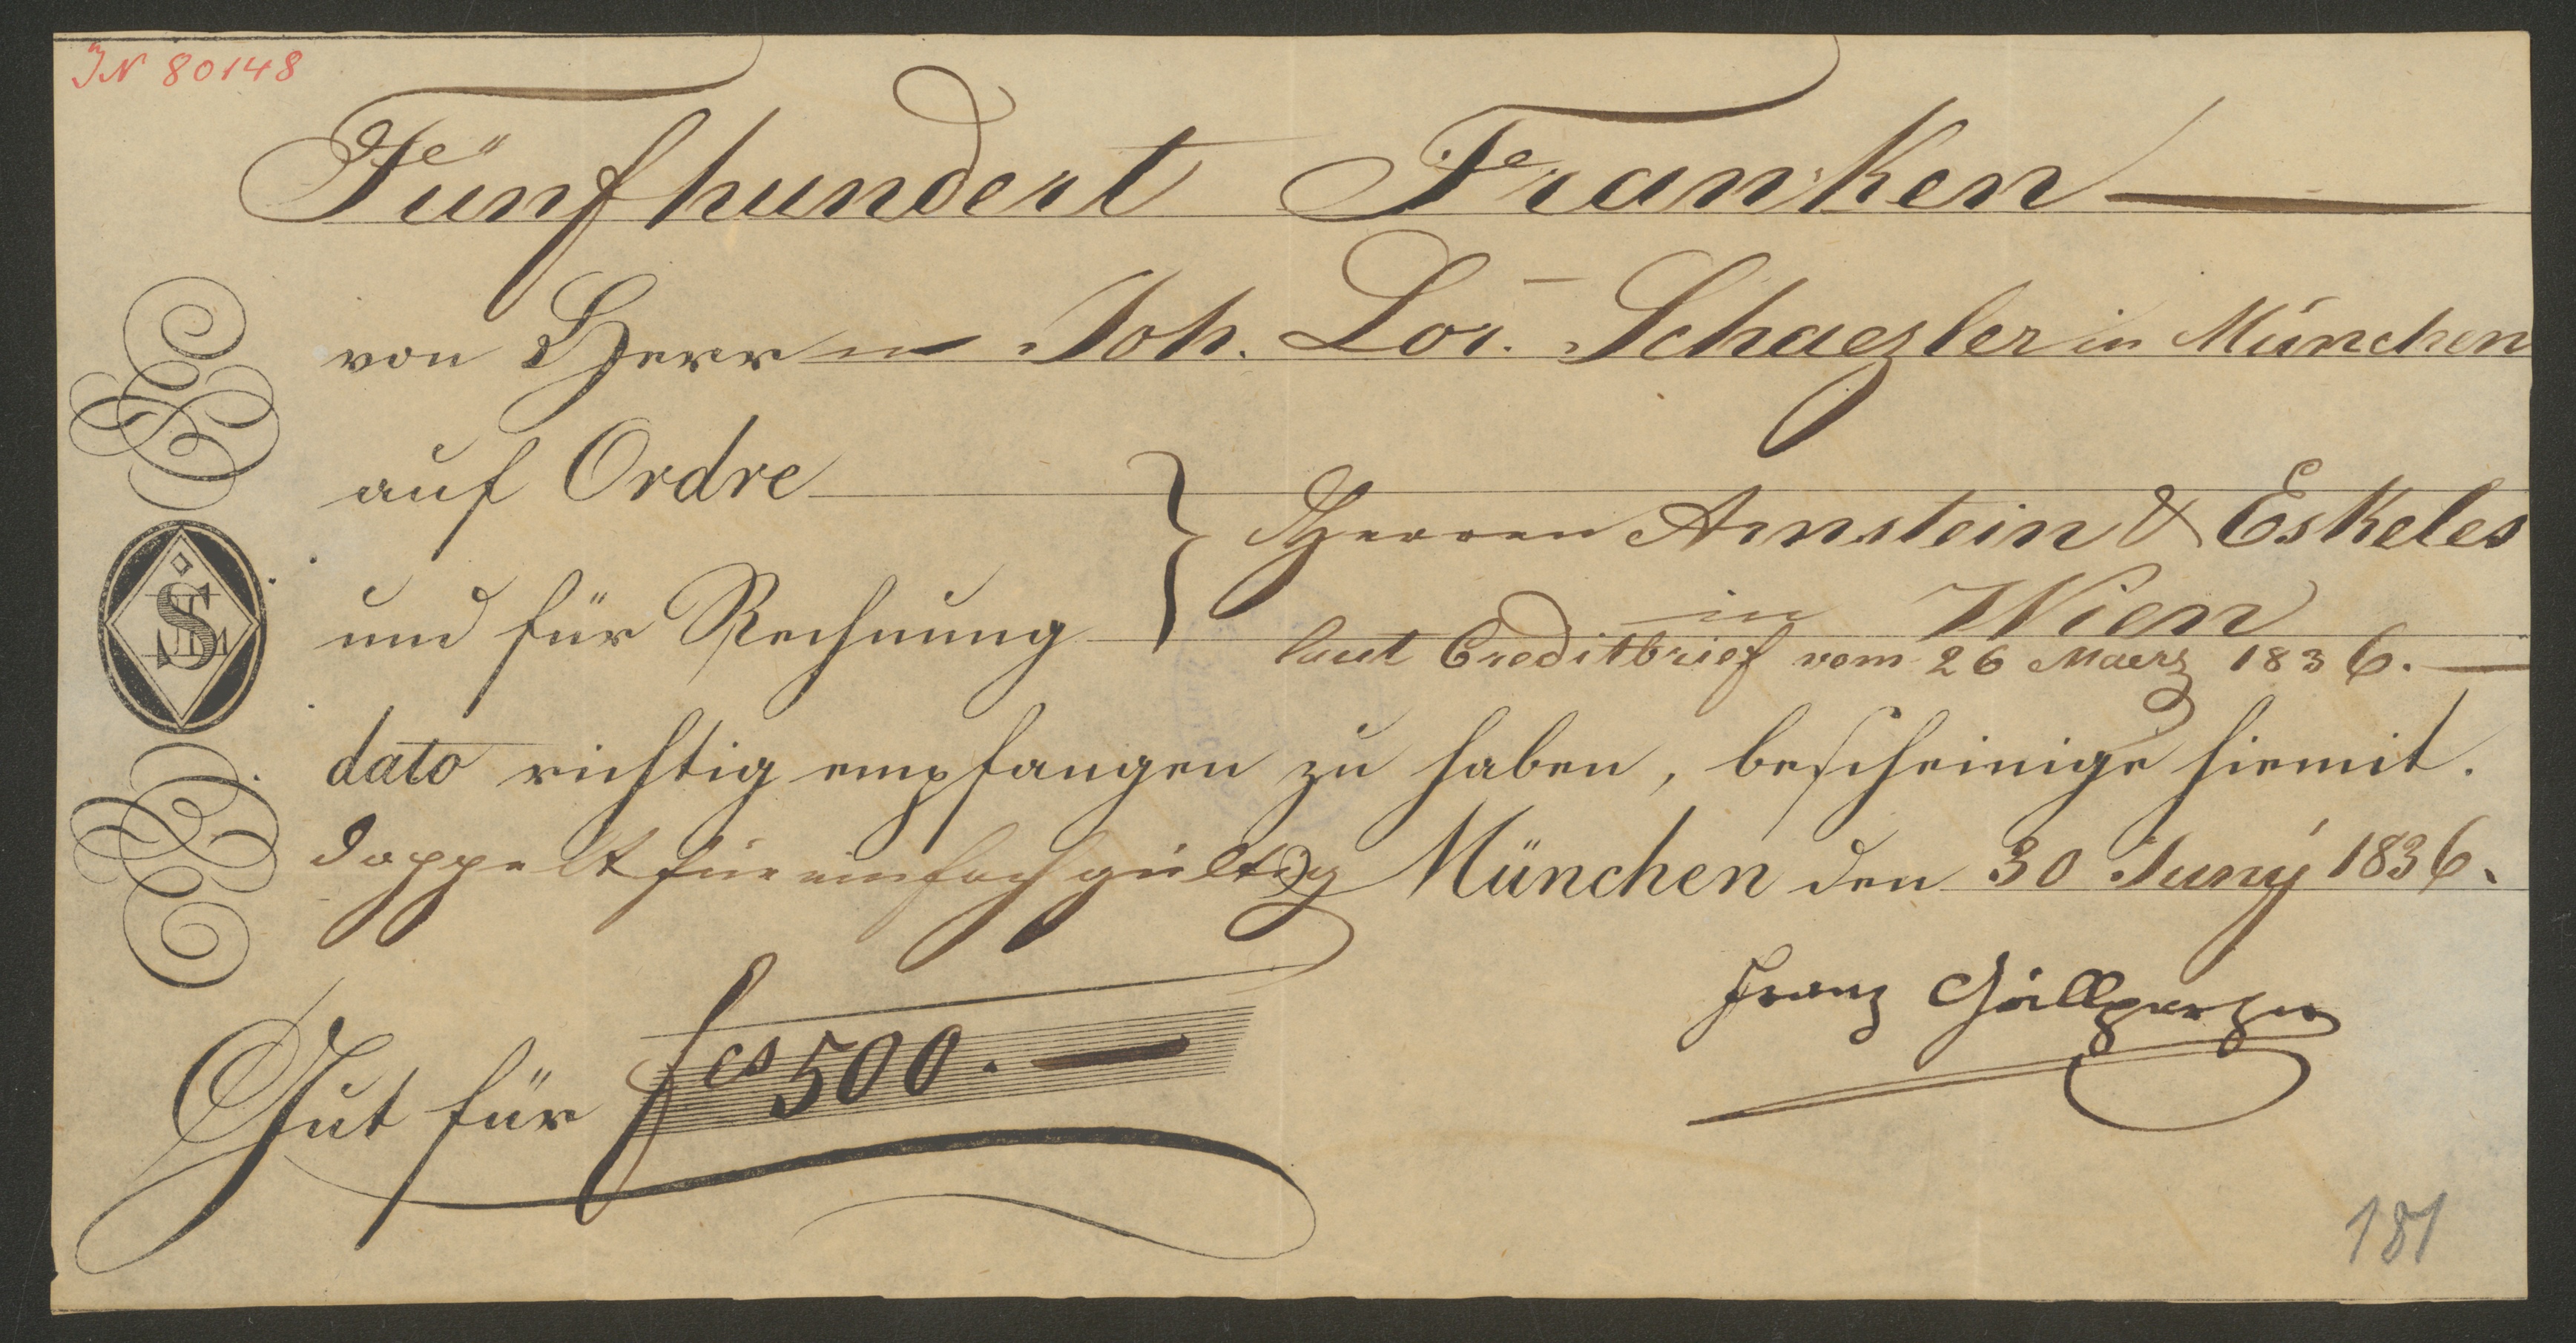 IN 80148
Fünfhundert Franken
von Herrn Joh. Lor. Schaezler in München
auf Ordre
Herren Arnstein & Eskeles
in Wien
und für Rechnung
laut Creditbrief vom 26 Maerz 1836.
dato richtig empfangen zu haben, bescheinige hiemit.
doppelt für einfach gültig München den 30 Juny 1836.
Franz Grillparzer
Gut für fcs 500.
181